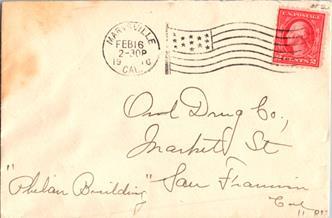 MARYSVILLE
FEB 16
2-30P
CAL.
U.S. POSTAGE
2 CENTS 2
Owl Drug Co.,
Market St
"Phelan Building" San Francisco
Cal